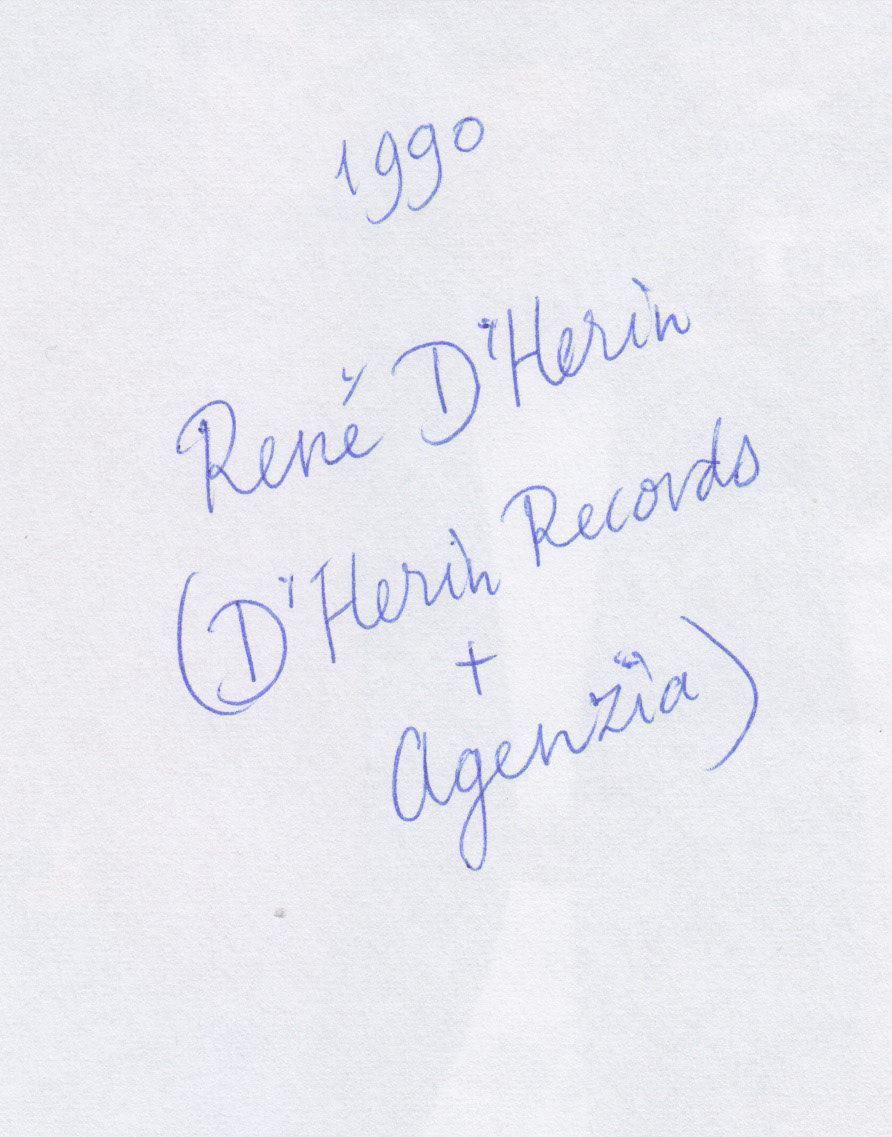 1990
René D'Herin
(D'Herin Records
+
Agenzia)